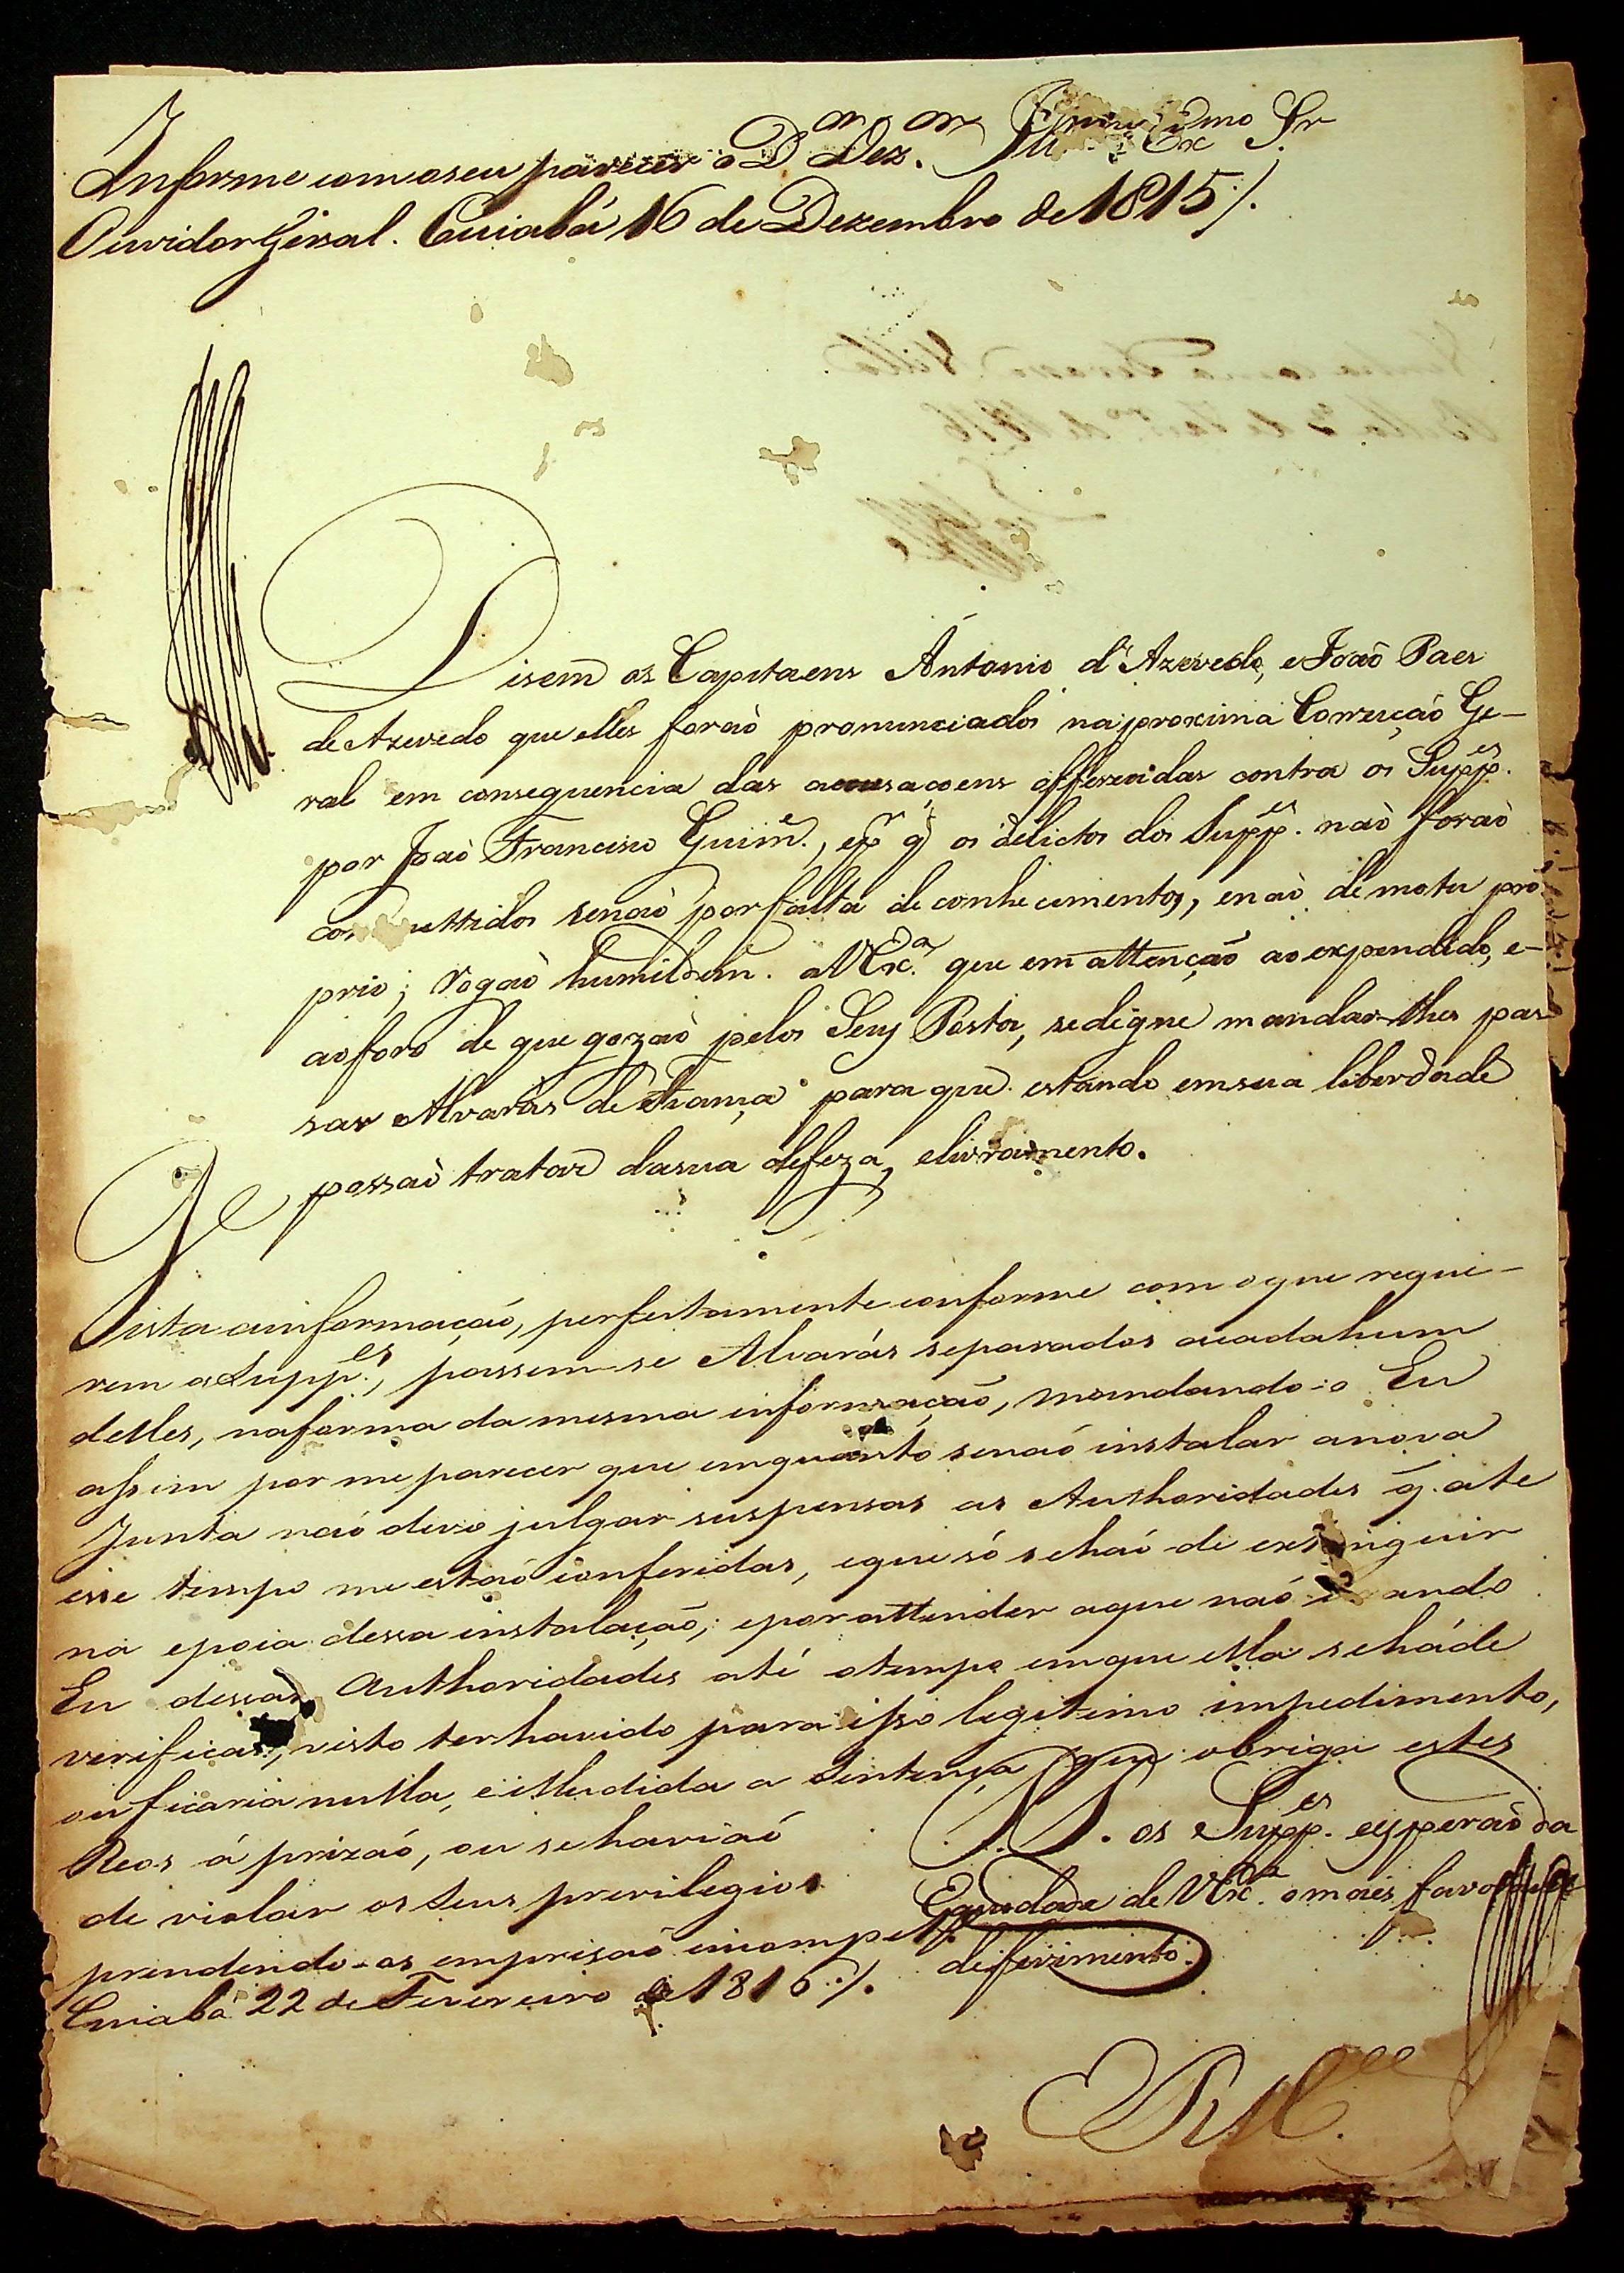 Informe com o seu parecer o D.or Dez.or Ill.mo Ex.mo Sr
Ouvidor Geral. Cuiabá 16 de Dezembro de 1815 /.
Disem os Capitaens Antonio d'Azevedo, e Joaõ Paes
de Azevedo que elles foraõ pronunciados na proxima Correiçaõ Ge-
ral em consequencia das acusaçoens offerecidas contra os Supp.es
por Joaõ Francisco Guim.e, e p.r q̃ os delictos dos Supp.es naõ foraõ
commettidos senaõ por falta de conhecimentos, e naõ de motu pro-
prio; rogaõ humildem. a V Ex.a que em attençaõ ao expendido, e-
ao foro de que gozaõ pelos Seus Postos, se digne mandar-lhes pas-
sar Alvarás de Fiança para que estando em sua liberdade
possaõ tratar da sua defeza, e livramento.
Vista a informaçaõ, perfeitamente conforme com o que reque-
rem os Supp.es, passem-se Alvarás separados a cada hum
delles, na forma da mesma informaçaõ, mandando-o Eu
assim por me parecer que emquanto senaõ instalar a nova
Junta naõ devo julgar suspensas as Authoridades q̃. ate
esse tempo me estaõ conferidas, e que só se haõ de extinguir
na epoca dessa instalaçaõ; e por attender a que naõ ando
Eu dessas Authoridades até o tempo em que ella se há de
verificar, visto ter havido para isso legitimo impedimento,
ou ficaria nulla, e illudida a Sentença que obriga estes
Reos á prizaõ, ou se haviaõ
de violar os seus previlegios
prendendo-os em prisaõ incompet.e
Cuiabá 22 de Fevereiro de 1816 /.
P. P. os Supp.es esperaõ da
Equidade de V Ex.a o mais favoravel
deferimento.
E R M.ce